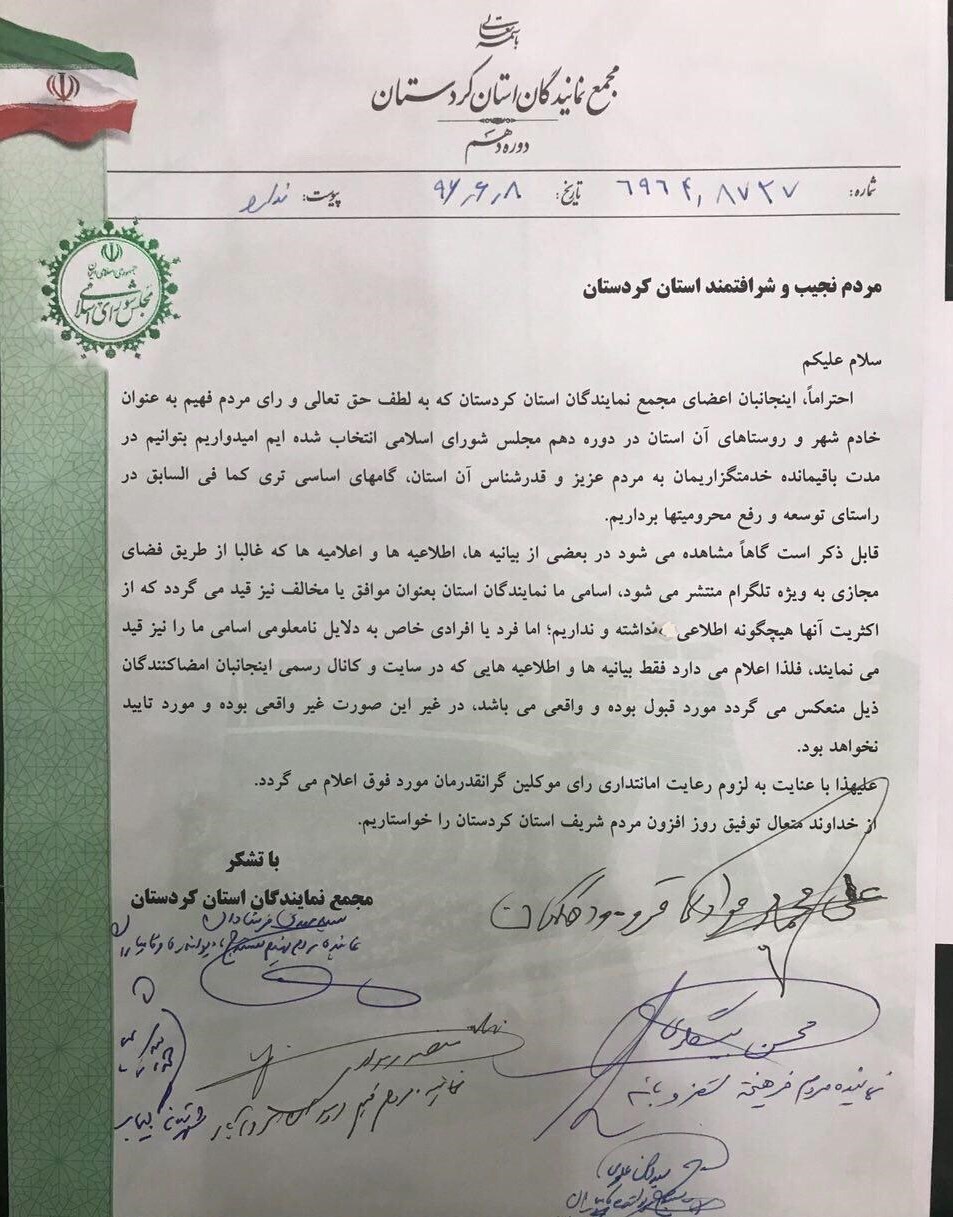 باسمه تعالی
مجمع نمایندگان استان کردستان
دوره دهم
شماره: ۶۹۶۴٫۸۷۳۷ تاریخ: ۹۶٫۶٫۸ پیوست: ندارد
جمهوری اسلامی ایران
مجلس شورای اسلامی
مردم نجیب و شرافتمند استان کردستان
سلام علیکم
احتراماً، اینجانبان اعضای مجمع نمایندگان استان کردستان که به لطف حق تعالی و رای مردم فهیم به عنوان
خادم شهر و روستاهای آن استان در دوره دهم مجلس شورای اسلامی انتخاب شده ایم امیدواریم بتوانیم در
مدت باقیمانده خدمتگزاریمان به مردم عزیز و قدرشناس آن استان، گامهای اساسی تری کما فی السابق در
راستای توسعه و رفع محرومیتها برداریم.
قابل ذکر است گاهاً مشاهده می شود در بعضی از بیانیه ها، اطلاعیه ها و اعلامیه ها که غالبا از طریق فضای
مجازی به ویژه تلگرام منتشر می شود، اسامی ما نمایندگان استان بعنوان موافق یا مخالف نیز قید می گردد که از
اکثریت آنها هیچگونه اطلاعی نداشته و نداریم؛ اما فرد یا افرادی خاص به دلایل نامعلومی اسامی ما را نیز قید
می نمایند، فلذا اعلام می دارد فقط بیانیه ها و اطلاعیه هایی که در سایت و کانال رسمی اینجانبان امضاکنندگان
ذیل منعکس می گردد مورد قبول بوده و واقعی می باشد، در غیر این صورت غیر واقعی بوده و مورد تایید
نخواهد بود.
علیهذا با عنایت به لزوم رعایت امانتداری رای موکلین گرانقدرمان مورد فوق اعلام می گردد.
از خداوند متعال توفیق روز افزون مردم شریف استان کردستان را خواستاریم.
با تشکر
مجمع نمایندگان استان کردستان
سید مهدی فرشادان
نماینده مردم فهیم سنندج، دیواندره و کامیاران
علی محمد مرادی قروه و دهگلان
محسن بیگلری
نماینده مردم فرهیخته سقز و بانه
نماینده مردم فهیم
سید احسن علوی